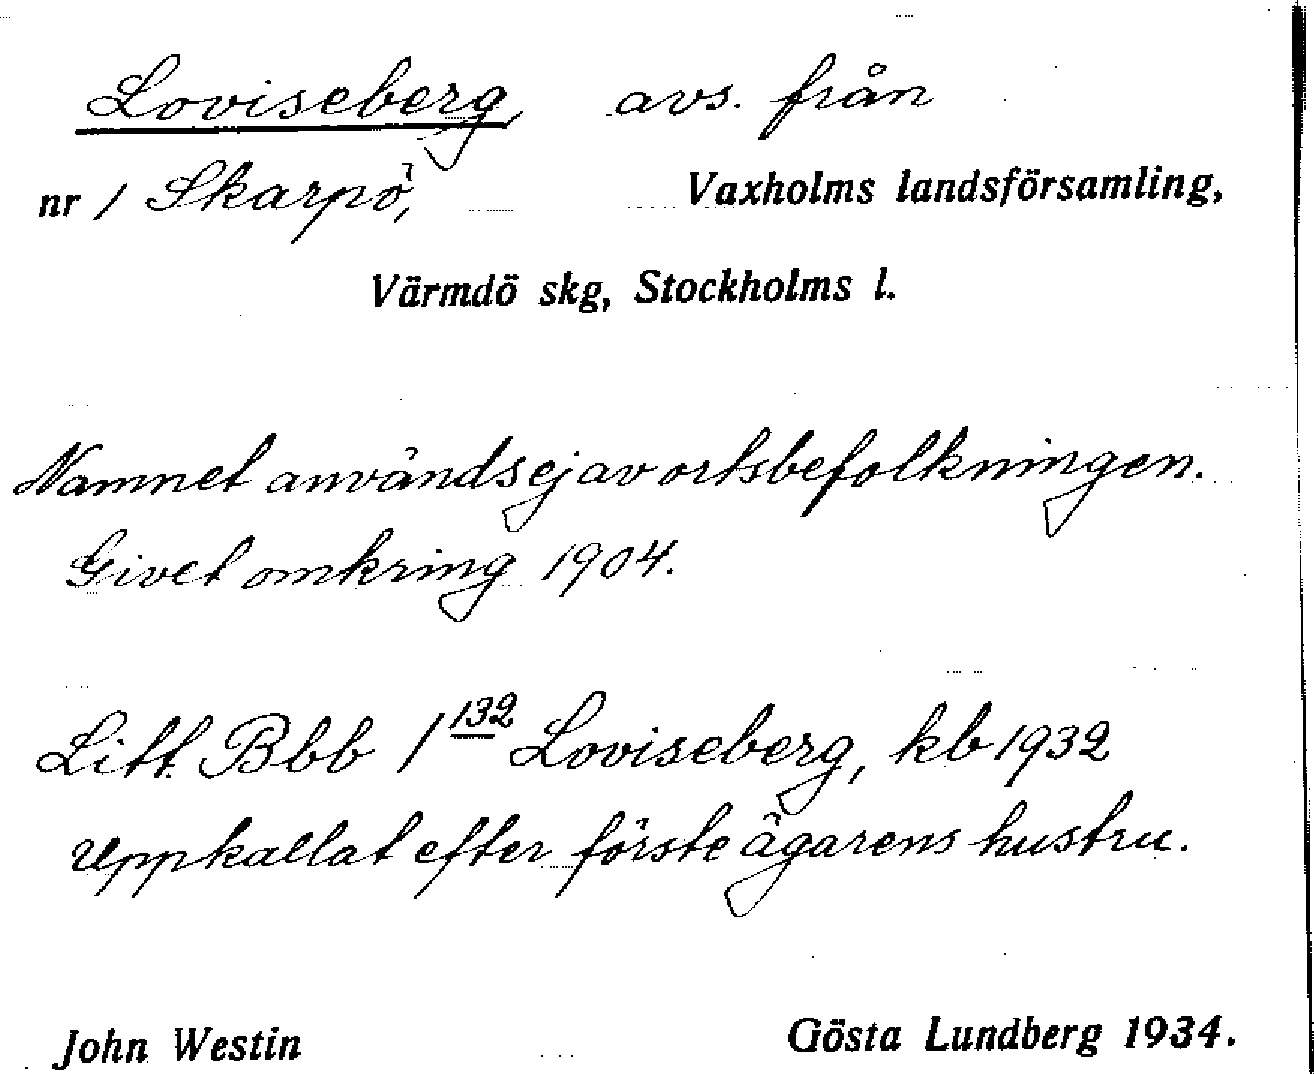 Loviseberg, avs. från
nr 1 Skarpö, Vaxholms landsförsamling,
Värmdö skg, Stockholms l.
Namnet användsejavortsbefolkningen.
Givet omkring 1904.
Litt. Bbb 1 132 Loviseberg, kb 1932
Uppkallat efter förste ägarens hustru.
John Westin Gösta Lundberg 1934.